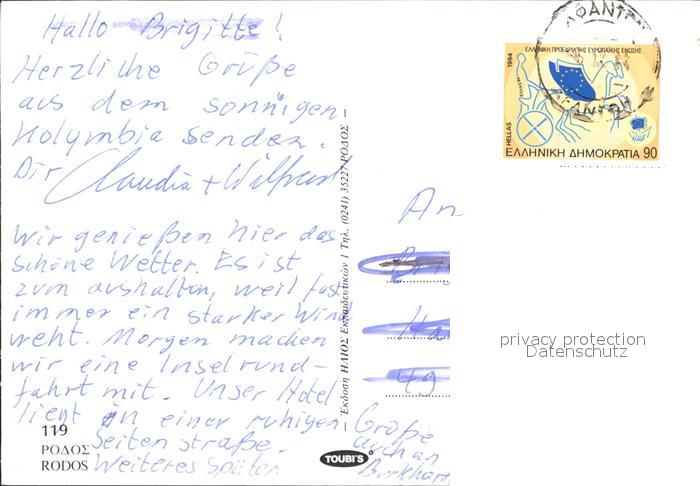 Hallo Brigitte!
Herzliche Grüße
aus dem sonnigen
Kolymbia senden.
Dir Claudia + Wilfried
Wir genießen hier das
schöne Wetter. Es ist
zum aushalten, weil fast
immer ein starker Wind
weht. Morgen machen
wir eine Inselrund-
fahrt mit. Unser Hotel
liegt in einer ruhigen
Seitenstraße.
Weiteres später.
119
ΡΟΔΟΣ
RODOS
— Έκδοση ΗΛΙΟΣ Εκπαιδευτικών 1 Τηλ. (0241) 35227 ΡΟΔΟΣ —
TOUBI'S
ΕΛΛΗΝΙΚΗ ΠΡΟΕΔΡΙΑ ΤΗΣ ΕΥΡΩΠΑΪΚΗΣ ΕΝΩΣΗΣ
1994
HELLAS
ΕΛΛΗΝΙΚΗ ΔΗΜΟΚΡΑΤΙΑ 90
An
49
Grüße
auch an
Burkhard
privacy protection
Datenschutz